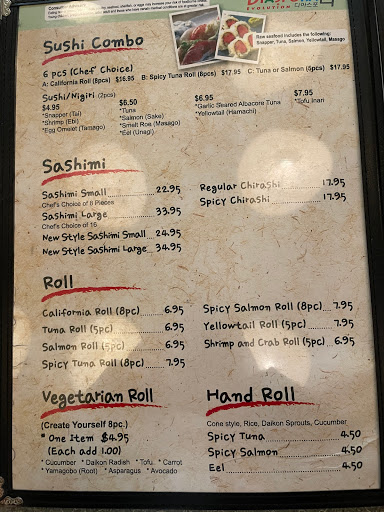 DIASPORA
EVOLUTION 디아스포라
Raw seafood includes the following:
Snapper, Tuna, Salmon, Yellowtail, Masago
Sushi Combo
6 pcs (Chef Choice)
A: California Roll (8pcs) $16.95 B: Spicy Tuna Roll (8pcs) $17.95 C: Tuna or Salmon (5pcs) $17.95
Sushi/Nigiri (2pcs)
$4.95
*Snapper (Tai)
*Shrimp (Ebi)
*Egg Omelet (Tamago)
$6.50
*Tuna
*Salmon (Sake)
*Smelt Roe (Masago)
*Eel (Unagi)
$6.95
*Garlic Seared Albacore Tuna
*Yellowtail (Hamachi)
$7.95
*Tofu Inari
Sashimi
Sashimi Small 22.95
Chef's Choice of 8 Pieces
Sashimi Large 33.95
Chef's Choice of 16
New Style Sashimi Small 24.95
New Style Sashimi Large 34.95
Regular Chirashi 17.95
Spicy Chirashi 17.95
Roll
California Roll (8pc) 6.95
Tuna Roll (5pc) 6.95
Salmon Roll (5pc) 6.95
Spicy Tuna Roll (8pc) 7.95
Spicy Salmon Roll (8pc) 7.95
Yellowtail Roll (5pc) 7.95
Shrimp and Crab Roll (5pc) 6.95
Vegetarian Roll
(Create Yourself 8pc.)
* One Item $4.95
(Each add 1.00)
* Cucumber * Daikon Radish * Tofu * Carrot
* Yamagobo (Root) * Asparagus * Avocado
Hand Roll
Cone style, Rice, Daikon Sprouts, Cucumber
Spicy Tuna 4.50
Spicy Salmon 4.50
Eel 4.50